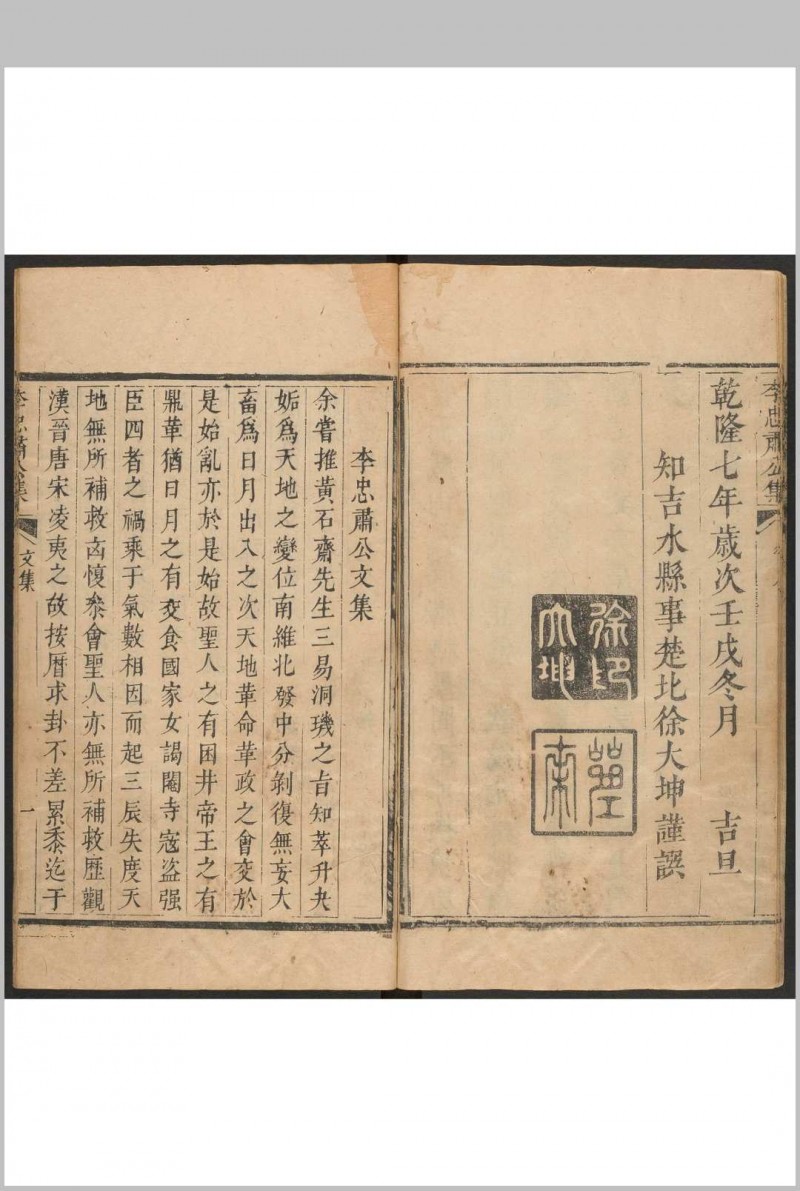 李忠肅公集
乾隆七年歲次壬戌冬月　吉旦
知吉水縣事楚北徐大坤謹譔
徐印
大坤
李忠肅公文集
余嘗推黃石齋先生三易洞璣之旨知萃升夬
姤爲天地之變位南維北發中分剝復無妄大
畜爲日月出入之次天地革命革政之會变於
是始亂亦於是始故聖人之有困井帝王之有
鼎革猶日月之有交食國家女謁閹寺寇盗强
臣四者之禍乘于氣數相因而起三辰失度天
地無所補救㐫愎叅會聖人亦無所補救歷觀
漢晉唐宋凌夷之故按曆求卦不差累黍迄于
李忠肅公集
文集
一